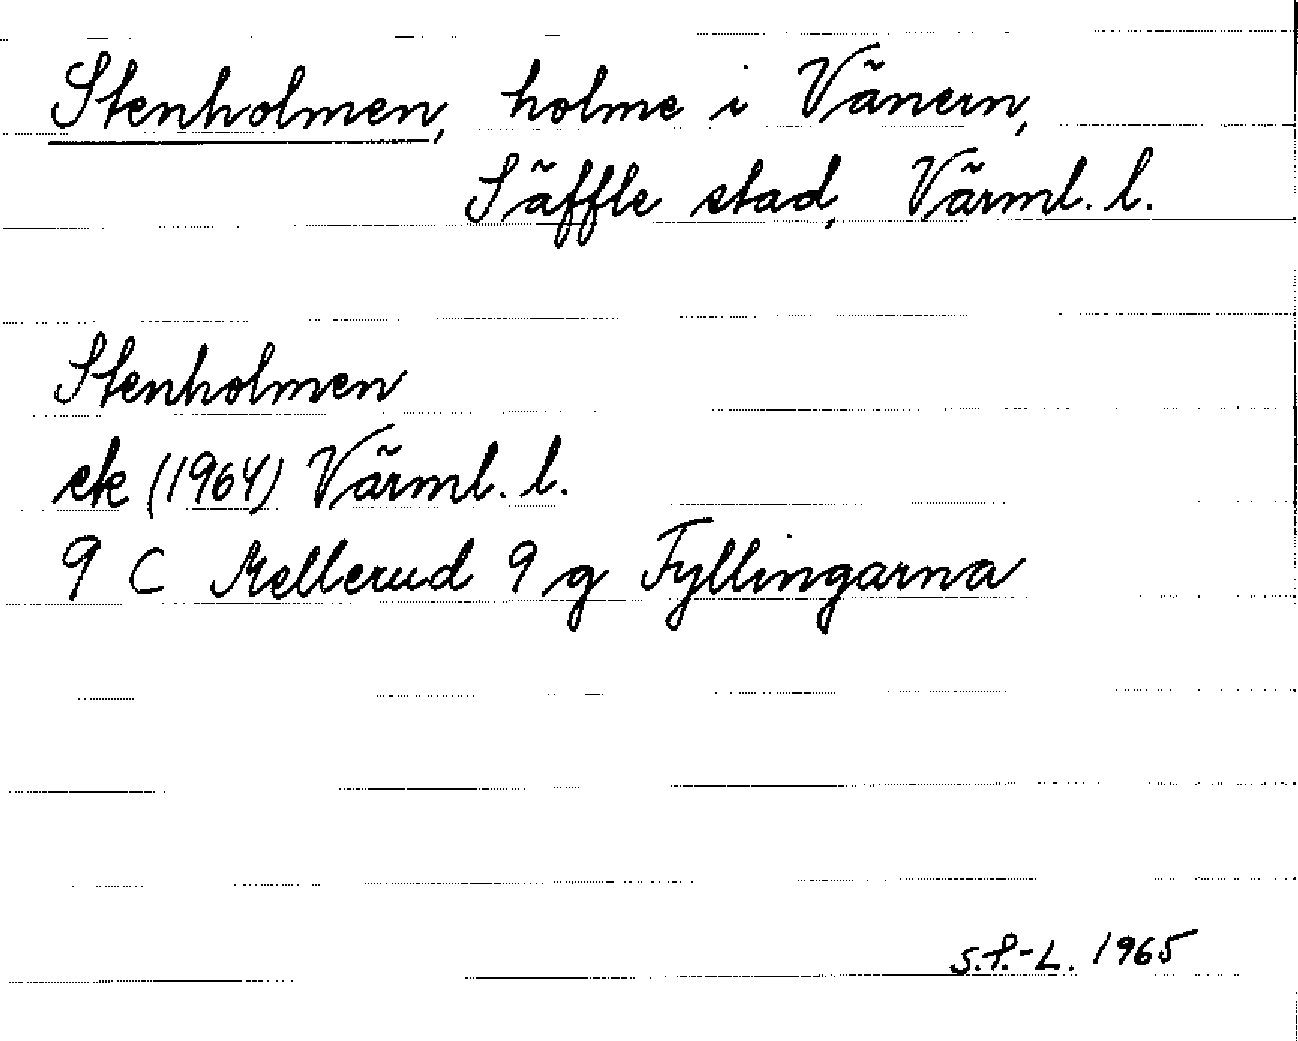 Stenholmen, holme i Vänern,
Säffle stad, Värml. l.
Stenholmen
ek (1964) Värml. l.
9 C Mellerud 9 g Fyllingarna
S.P.-L. 1965